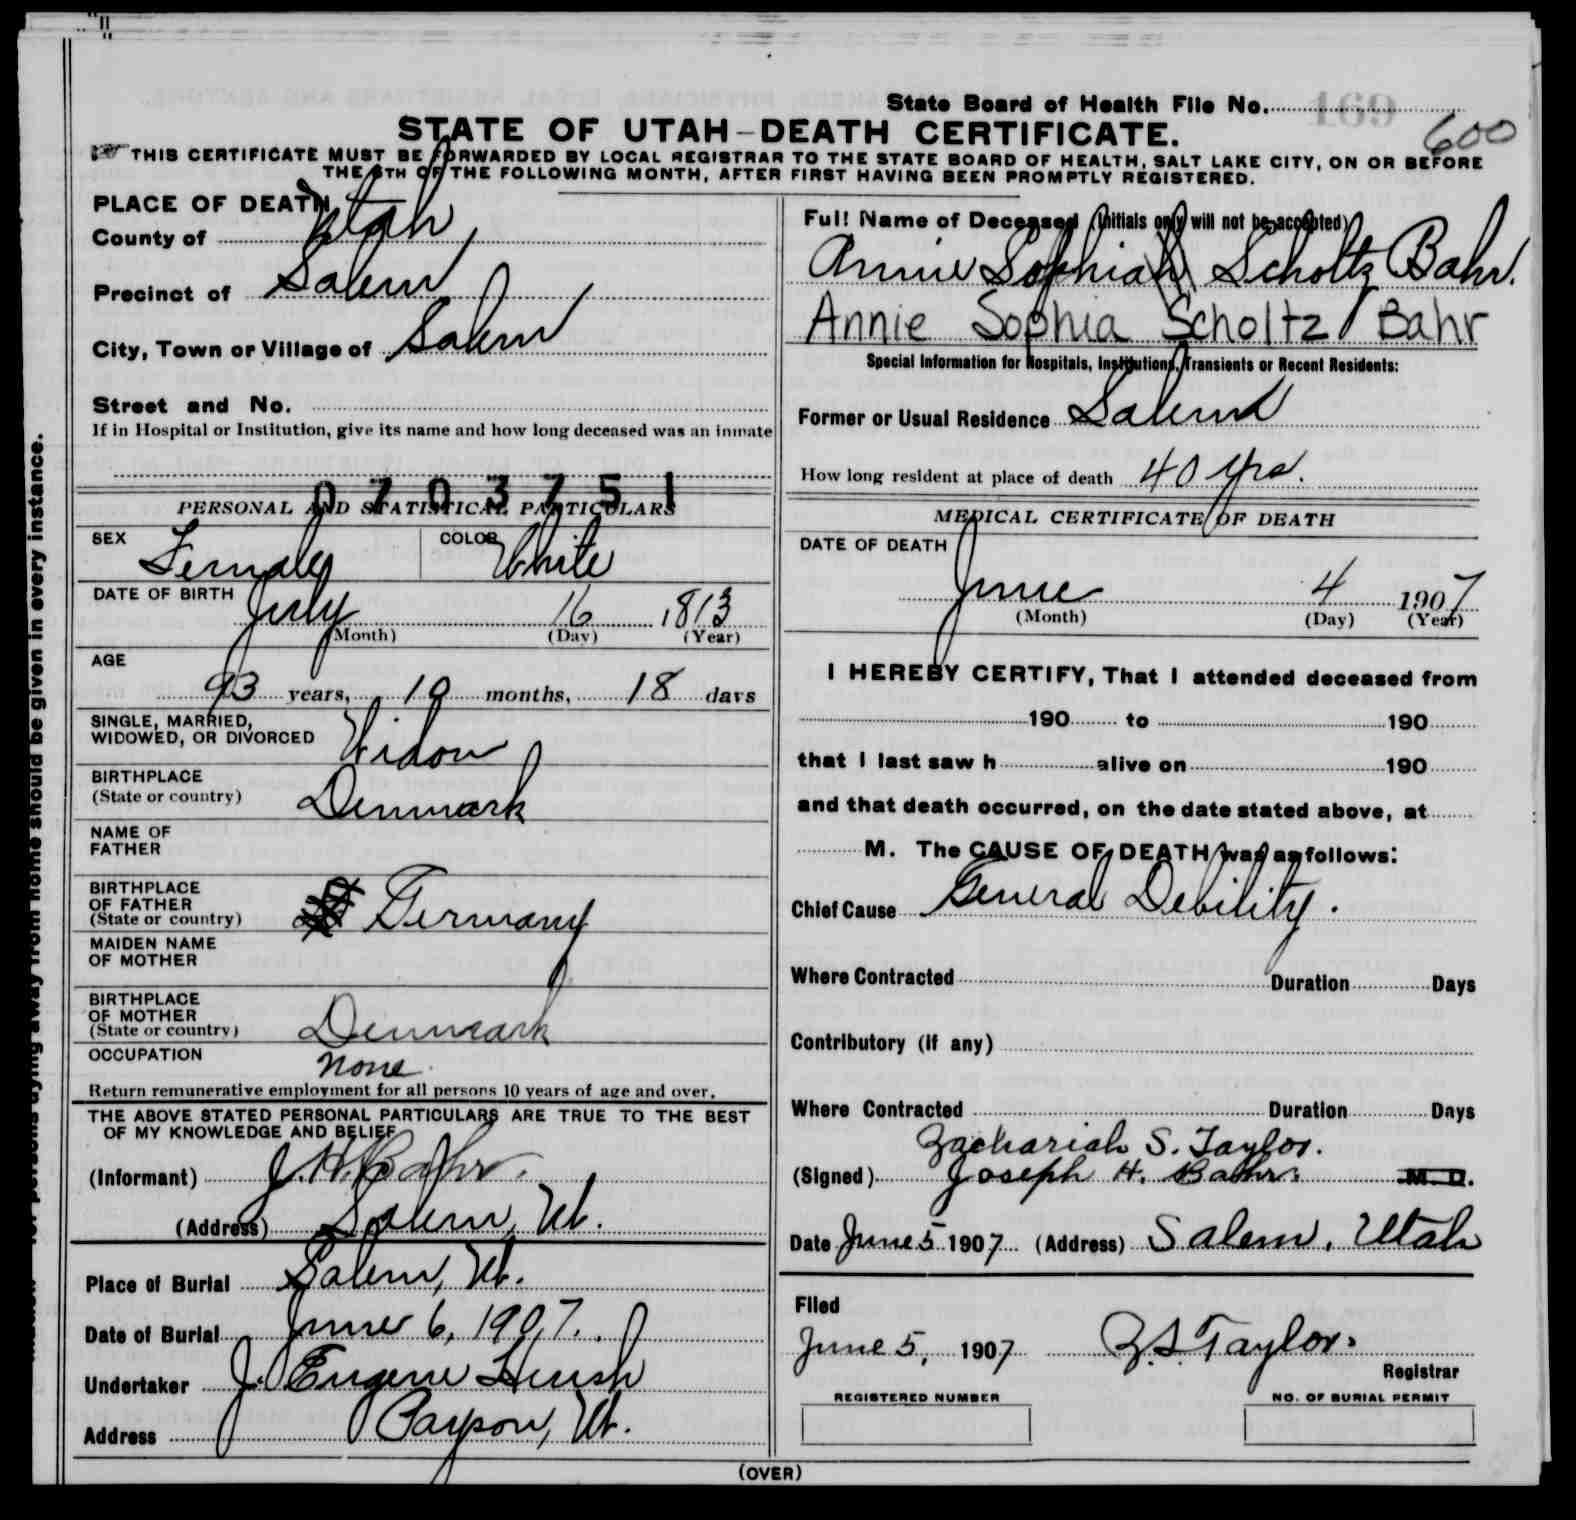 State Board of Health File No.
169
600
STATE OF UTAH–DEATH CERTIFICATE.
THIS CERTIFICATE MUST BE FORWARDED BY LOCAL REGISTRAR TO THE STATE BOARD OF HEALTH, SALT LAKE CITY, ON OR BEFORE
THE 5TH OF THE FOLLOWING MONTH, AFTER FIRST HAVING BEEN PROMPTLY REGISTERED.
PLACE OF DEATH
County of Utah
Precinct of Salem
City, Town or Village of Salem
Street and No.
If in Hospital or Institution, give its name and how long deceased was an inmate
0703751
PERSONAL AND STATISTICAL PARTICULARS
SEX Female COLOR White
DATE OF BIRTH July 16 1813
(Month) (Day) (Year)
AGE
93 years, 10 months, 18 days
SINGLE, MARRIED,
WIDOWED, OR DIVORCED Widow
BIRTHPLACE
(State or country) Denmark
NAME OF
FATHER
BIRTHPLACE
OF FATHER
(State or country) Germany
MAIDEN NAME
OF MOTHER
BIRTHPLACE
OF MOTHER
(State or country) Denmark
OCCUPATION none
Return remunerative employment for all persons 10 years of age and over.
THE ABOVE STATED PERSONAL PARTICULARS ARE TRUE TO THE BEST
OF MY KNOWLEDGE AND BELIEF
(Informant) J. H. Bahr.
(Address) Salem, Ut.
Place of Burial Salem, Ut.
Date of Burial June 6, 1907.
Undertaker J. Eugene
Address Payson, Ut.
Full Name of Deceased (Initials only will not be accepted)
Annie Sophia Scholtz Bahr.
Annie Sophia Scholtz Bahr
Special Information for Hospitals, Institutions, Transients or Recent Residents:
Former or Usual Residence Salem
How long resident at place of death 40 yrs.
MEDICAL CERTIFICATE OF DEATH
DATE OF DEATH
June 4 1907
(Month) (Day) (Year)
I HEREBY CERTIFY, That I attended deceased from
190 to 190
that I last saw h alive on 190
and that death occurred, on the date stated above, at
M. The CAUSE OF DEATH was as follows:
Chief Cause General Debility.
Where Contracted Duration Days
Contributory (if any)
Where Contracted Duration Days
Zachariah S. Taylor.
(Signed) Joseph H. Bahr. M. D.
Date June 5 1907 (Address) Salem, Utah
Filed
June 5, 1907 Z. S. Taylor.
Registrar
REGISTERED NUMBER NO. OF BURIAL PERMIT
(OVER)
home should be given in every instance.